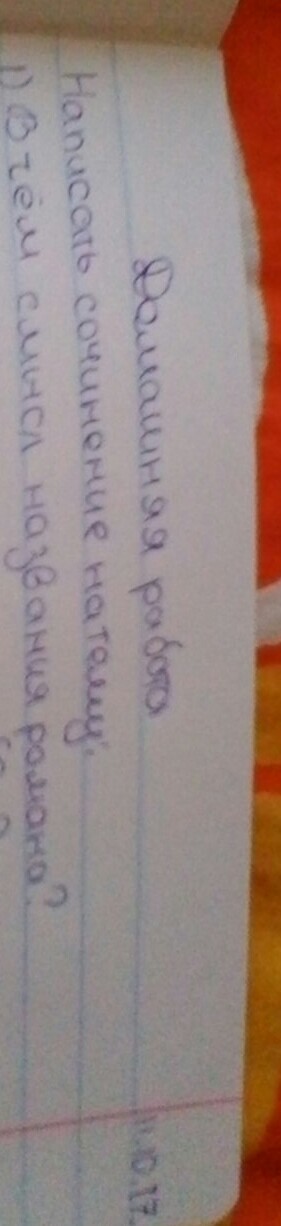 Домашняя работа
11.10.17.
Написать сочинение на тему:
1) В чём смысл названия романа?